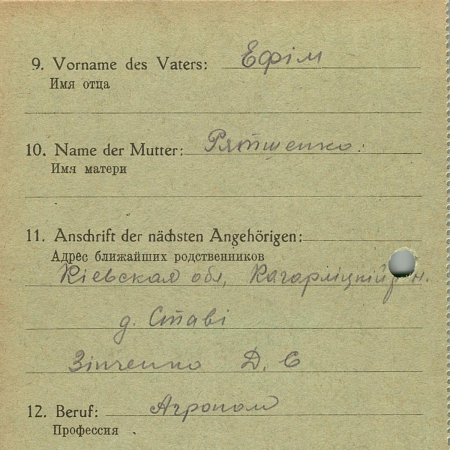 9. Vorname des Vaters: Ефім
Имя отца
10. Name der Mutter: Рятшенко.
Имя матери
11. Anschrift der nächsten Angehörigen:
Адрес ближайших родственников
Кіевская обл, Кагарліцкий р н.
д. Ставі
Зінченко Д. С
12. Beruf: Агроном
Профессия